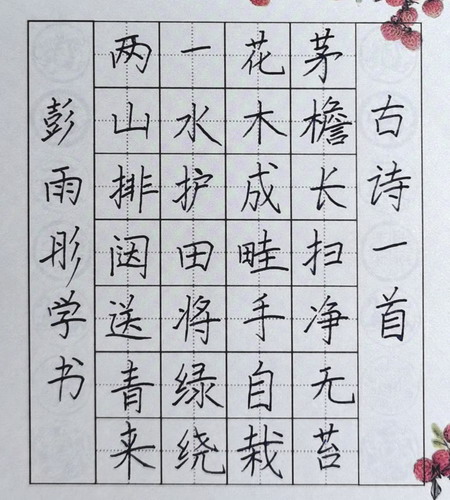 古诗一首
茅檐长扫净无苔
花木成畦手自栽
一水护田将绿绕
两山排闼送青来
彭雨彤学书